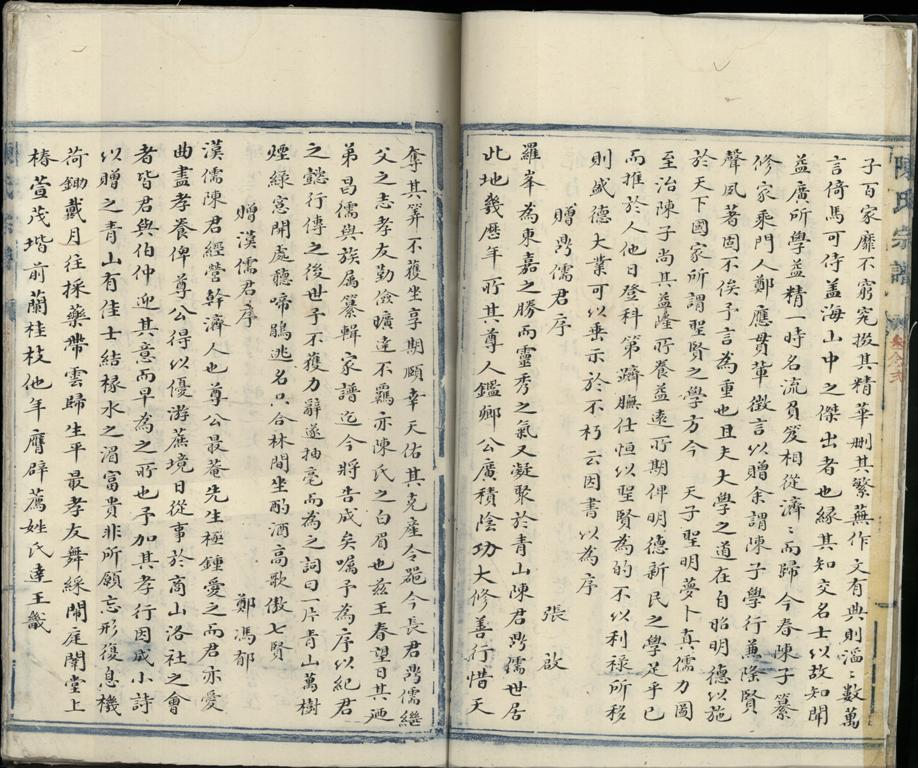 陳氏宗譜
子百家靡不窮究掇其精華刪其繁蕪作文有典則滔滔數萬
言倚馬可待盖海山中之傑出者也緣其知交名士以故知聞
益廣所學益精一時名流負笈相從濟濟而歸今春陳子纂
修家乘門人鄭應貫輩徵言以贈余謂陳子學行兼隆賢
聲夙著固不俟予言為重也且夫大學之道在自昭明德以施
於天下國家所謂聖賢之學方今 天子聖明夢卜真儒力圖
至治陳子尚其益隆所養益遠所期俾明德新民之學足乎已
而推於人他日登科第躋膴仕恒以聖賢為的不以利祿所移
則盛德大業可以垂示於不朽云因書以為序
贈鼎儒君序 張啟
羅峯為東嘉之勝而靈秀之氣又凝聚於青山陳君鼎儒世居
此地幾歷年所其尊人鑑卿公廣積陰功大修善行惜天
奪其算不獲坐享期頤幸天佑其克產令器今長君鼎儒繼
父之志孝友勤儉曠達不羈亦陳氏之白眉也兹王春望日其廼
弟昌儒與族属纂輯家譜迄今將告成矣嘱予為序以紀君
之懿行傳之後世予不獲力辭遂抽毫而為之詞曰一片青山萬樹
煙綠窓閒處聽啼鵑逃名只合林間坐酌酒高歌傲七賢
贈漢儒君序 鄭馮郁
漢儒陳君經營幹濟人也尊公最菴先生極鍾愛之而君亦愛
曲盡孝養俾尊公得以優游蔗境日從事於商山洛社之會
者皆君與伯仲迎其意而早為之所也予加其孝行因成小詩
以贈之青山有佳士結椽水之湄富貴非所願忘形復息機
荷鋤戴月往採藥帶雲歸生平最孝友舞綵鬧庭闈堂上
椿萱茂堦前蘭桂枝他年膺辟薦姓氏達王畿